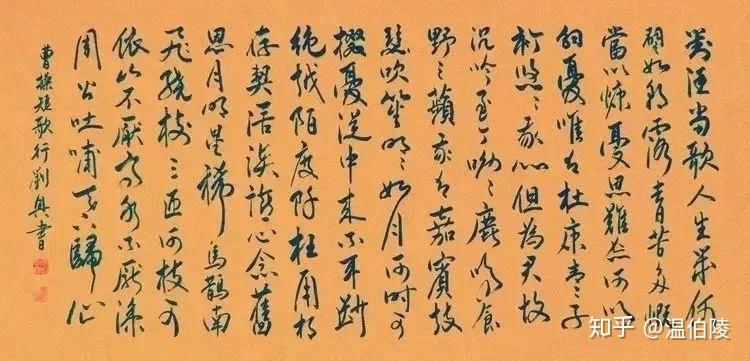 對酒当歌人生幾何
譬如朝露去日苦多慨
當以慷憂思難忘何以
解憂唯有杜康青々子
衿悠々我心但為君故
沉吟至今呦々鹿鳴食
野之蘋我有嘉賓鼓
瑟吹笙明々如月何時可
掇憂從中來不可斷
絶越陌度阡枉用相
存契闊談讌心念舊
恩月明星稀烏鵲南
飛繞樹三匝何枝可
依山不厭高水不厭深
周公吐哺天下歸心
曹操短歌行劉興書
知乎 @温伯陵